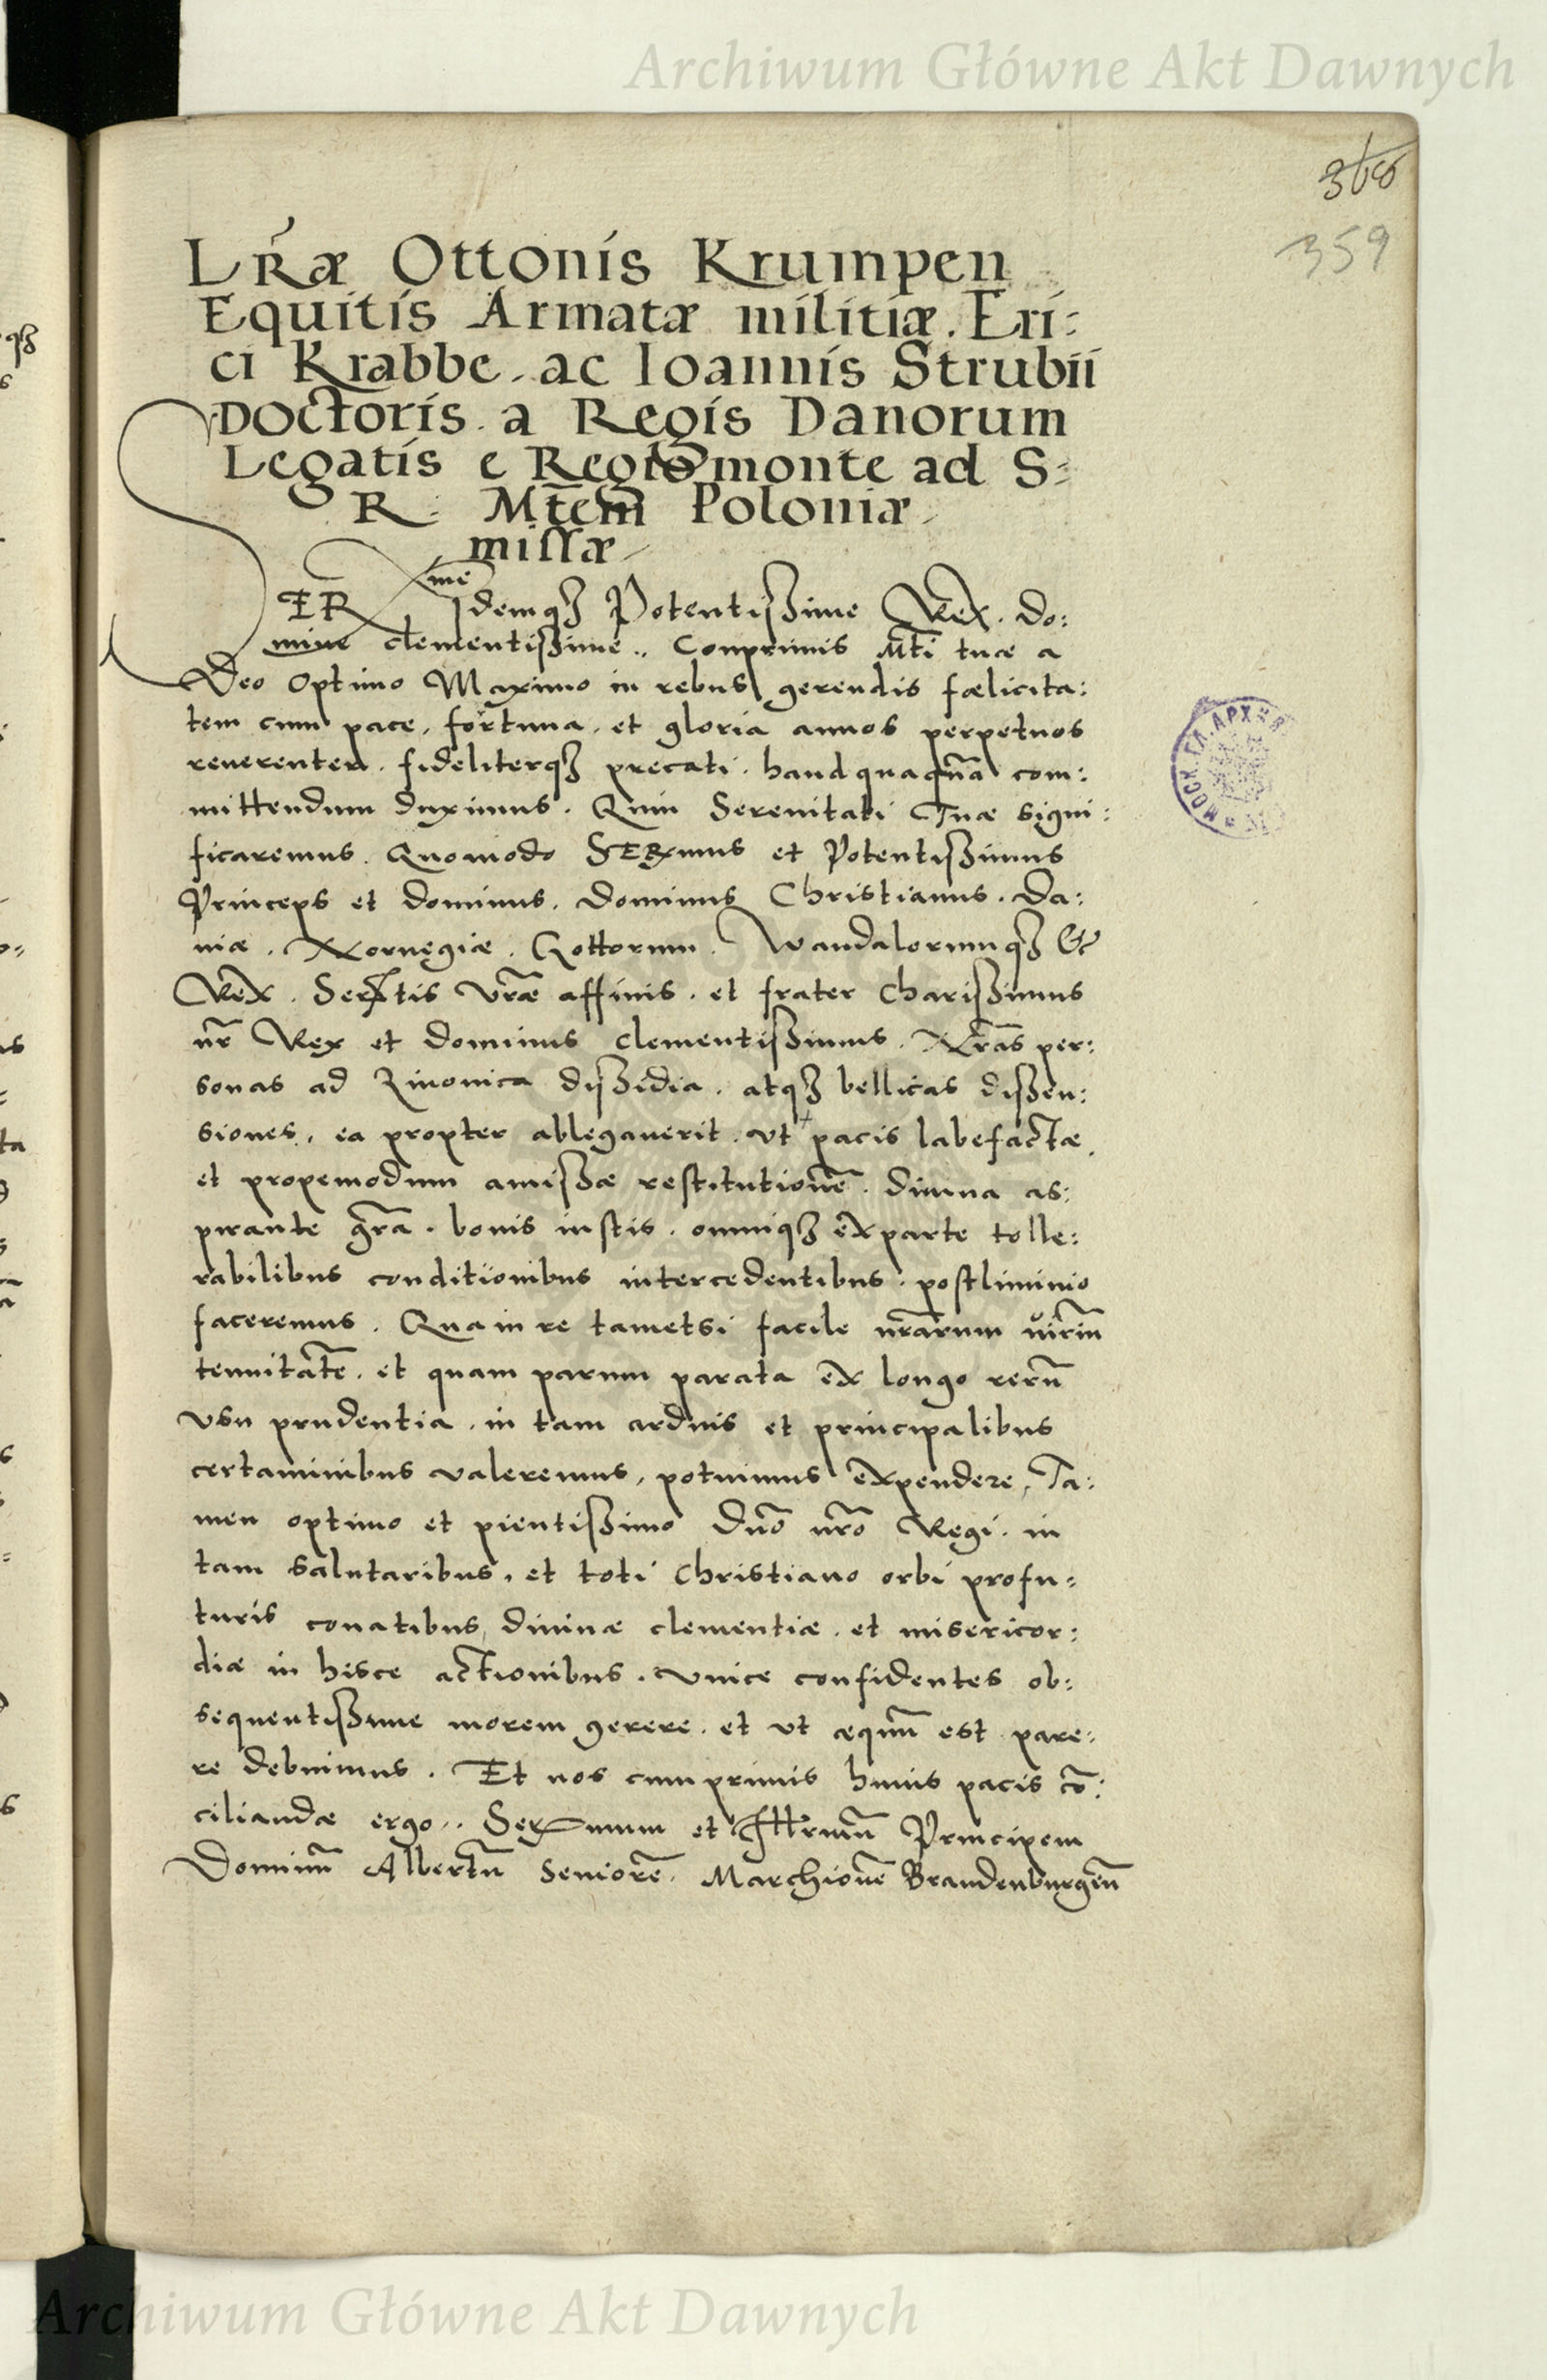 Archiwum Główne Akt Dawnych
368
359
Lr̃æ Ottonis Krumpen
Equitis Armatæ militiæ. Eri:
ci Krabbe. ac Ioannis Strubii
Doctoris. a Regis Danorum
Legatis e Regiomonte ad S:
R: Mtem̃ Poloniæ
missæ
SERxme Idemqꝫ Potentissime Rex. Do:
mine clementissime.. Conprimis Mti tuæ a
Deo Optimo Maximo in rebus gerendis fœlicita:
tem cum pace, fortuna, et gloria annos perpetuos
reuerenter. fideliterqꝫ precati. haudquaqua͂ com:
mittendum duximus. Quin Serenitati Tuæ signi:
ficaremus. Quomodo SERxmus et Potentissimus
Princeps et dominus. Dominus Christianus. Da:
niæ. Noruegiæ. Gottorum. Wandalorumqꝫ &c
Rex. Serx̃tis Vr̃æ affinis. et frater charissimus
nr̃ Rex et dominus clementissimus. Nr̃as per:
sonas ad Liuonica dissidia. atqꝫ bellicas dissen:
siones, ea propter ablegauerit. vt pacis labefactæ,
et propemodum amissæ restitutione͂. diuina as:
pirante gr̃a. bonis iustis. omniqꝫ ex parte tolle:
rabilibus conditionibus intercedentibus. postliminio
faceremus. Qua in re tametsi facile nr̃arum viriu͂
tenuitate͂. et quam parum parata ex longo reru͂
vsu prudentia. in tam arduis et principalibus
certaminibus valeremus, potuimus expendere, Ta:
men optimo et pientissimo Dn̄o nr̃o Regi. in
tam salutaribus. et toti christiano orbi profu:
turis conatibus, diuinæ clementiæ. et misericor:
diæ in hisce actionibus. vnice confidentes ob:
sequentissime morem gerere. et vt æquu͂ est pare:
re debuimus. Et nos cumprimis huius pacis co͂:
ciliandæ ergo.. Serxmum et Illr̃mu͂ Principem
Dominu͂ Albertu͂ Seniore͂. Marchione͂ Brandenburgen͂
МОСК. ГЛ. АРХИВ
Archiwum Główne Akt Dawnych